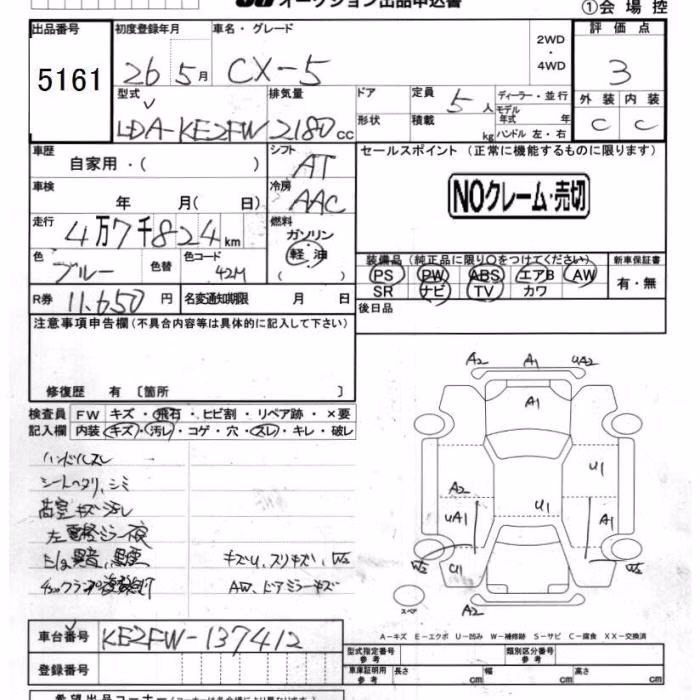 オークション出品申込書
①会場控
出品番号 初度登録年月 車名・グレード 2WD・4WD 評価点
5161 26 5月 CX-5 3
型式 排気量 ドア 定員 5人 ディーラー・並行 外装 内装
LDA-KE2FW 2180cc 形状 積載 kg モデル年式 年 ハンドル 左・右 C C
車歴 シフト セールスポイント (正常に機能するものに限ります)
自家用・( ) AT
車検 冷房 NOクレーム・売切
年 月( 日) AAC
走行 燃料
4万7千824km ガソリン・軽油
色 色替 色コード 装備品 (純正品に限り○をつけてください) 新車保証書
ブルー 42M PS PW ABS エアB AW 有・無
SR ナビ TV カワ
R券 11,650円 名変通知期限 月 日 後日品
注意事項申告欄(不具合内容等は具体的に記入して下さい)
修復歴 有 〔箇所 〕
検査員 FW キズ・飛石・ヒビ割・リペア跡・×要
記入欄 内装 キズ・汚レ・コゲ・穴・スレ・キレ・破レ
ハンドルスレ
シートヘタリ、シミ
キズ汚レ
左電格ミラー
異音、黒煙 キズU、スリキズ、WS
AW、ドアミラーキズ
A2 A1 UA2
A1
U1
A2
UA1 U1 A1
WS U1 WS
スペア A2
A-キズ E-エクボ U-凹み W-補修跡 S-サビ C-腐食 XX-交換済
車台番号 KE2FW-137412
型式指定番号 参考 類別区分番号 参考
登録番号 車庫証明用 参考 長さ cm 幅 cm 高さ cm
希望出品コーナー